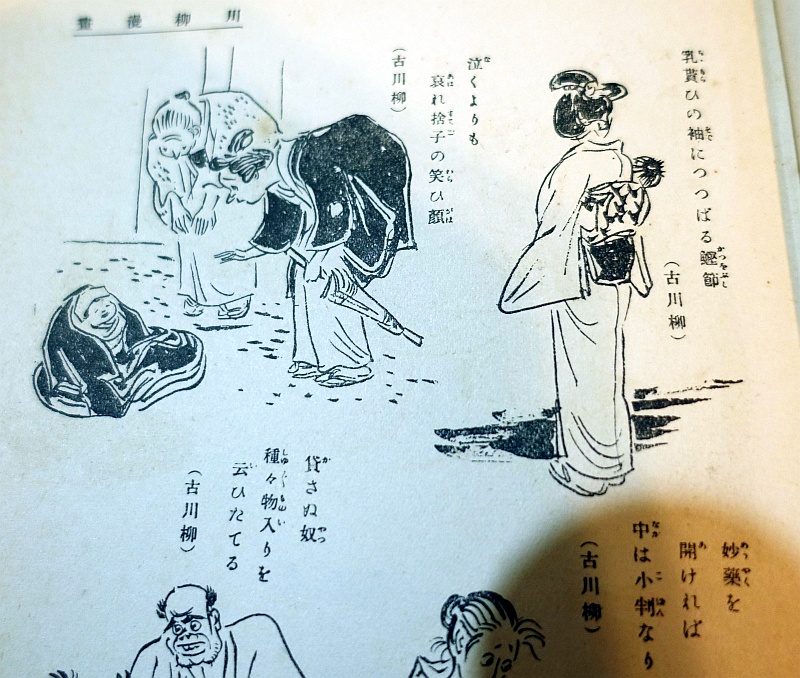 川柳漫畫
乳貰ひの袖につつぱる鰹節
(古川柳)
泣くよりも
哀れ捨子の笑ひ顔
(古川柳)
妙藥を
開ければ
中は小判なり
(古川柳)
貸さぬ奴
種々物入りを
云ひたてる
(古川柳)